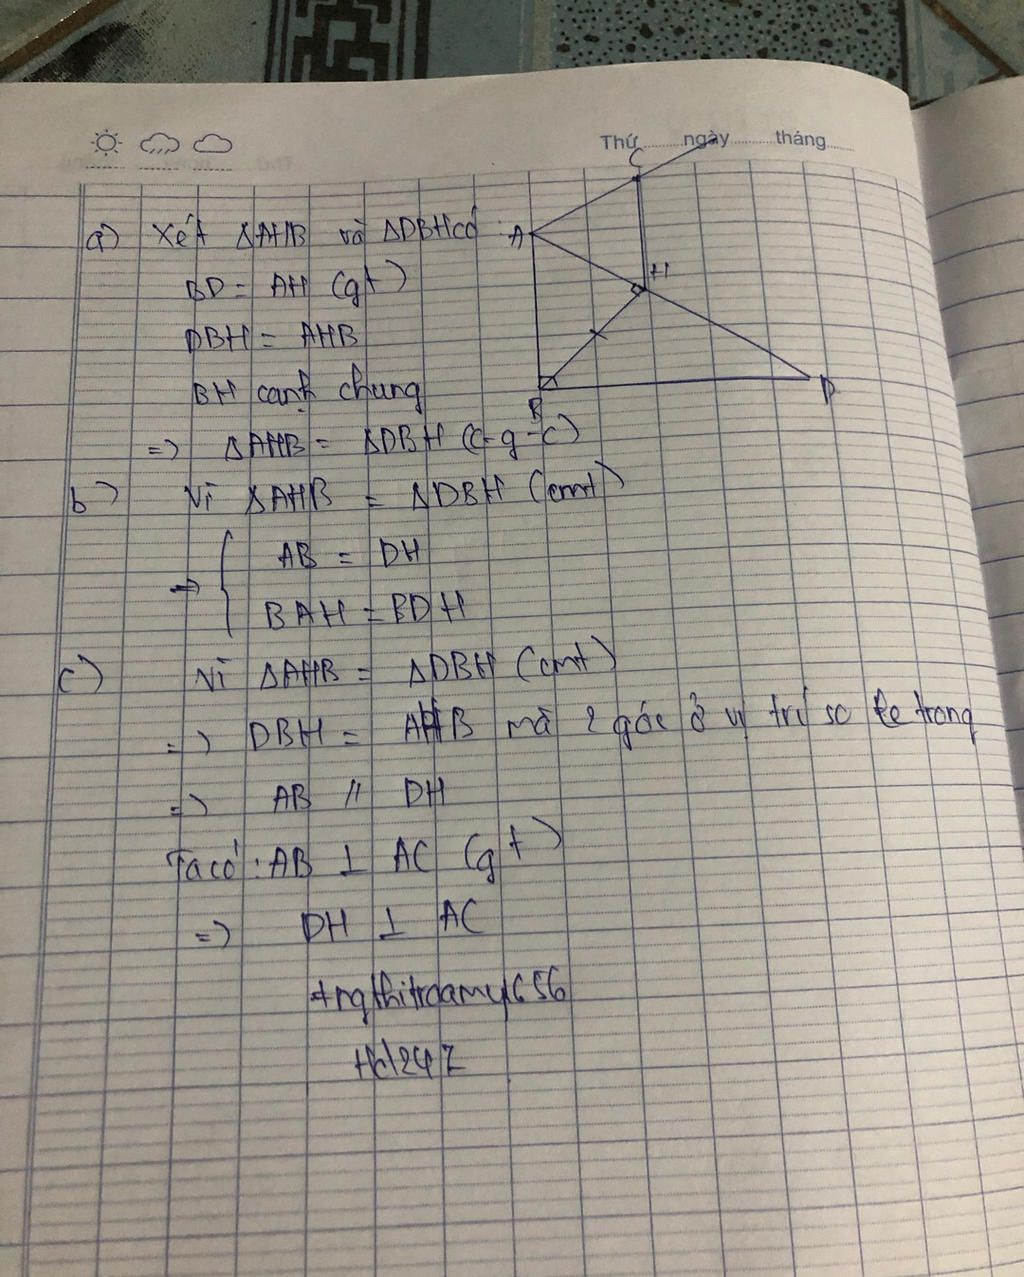 Thứ.........ngày..........tháng......
C
a) Xét ΔAHB và ΔDBH có : A
BD = AH (gt) H
DBH = AHB
BH cạnh chung
B D
=> ΔAHB = ΔDBH (c-g-c)
b) Vì ΔAHB = ΔDBH (cmt)
=> { AB = DH
BAH = BDH
c) Vì ΔAHB = ΔDBH (cmt)
=> DBH = AHB mà 2 góc ở vị trí so le trong
=> AB // DH
Ta có : AB ⊥ AC (gt)
=> DH ⊥ AC